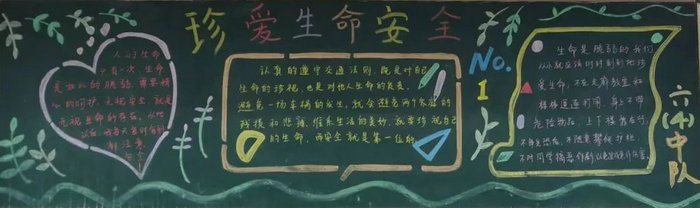 珍爱生命安全
人的生命
只有一次，生命
是如此的脆弱，需要精
心的呵护，无视安全，就是
无视生命的存在，从他
注意
安全
认真的遵守交通法则，既是对自己
生命的珍视，也是对他人生命的负责。
避免一场车祸的发生，就会避免两个家庭的
残损和悲痛，维系生活的美好，就要珍视自己
的生命，而安全就是第一位的
No.
1
生命是脆弱的我们
从小就应该时时刻刻地珍
爱生命，不在走廊教室和
楼梯通道打闹，身上不带
危险物品，上下楼靠右行，
不奔跑追逐，不随意攀爬
六(4)中队